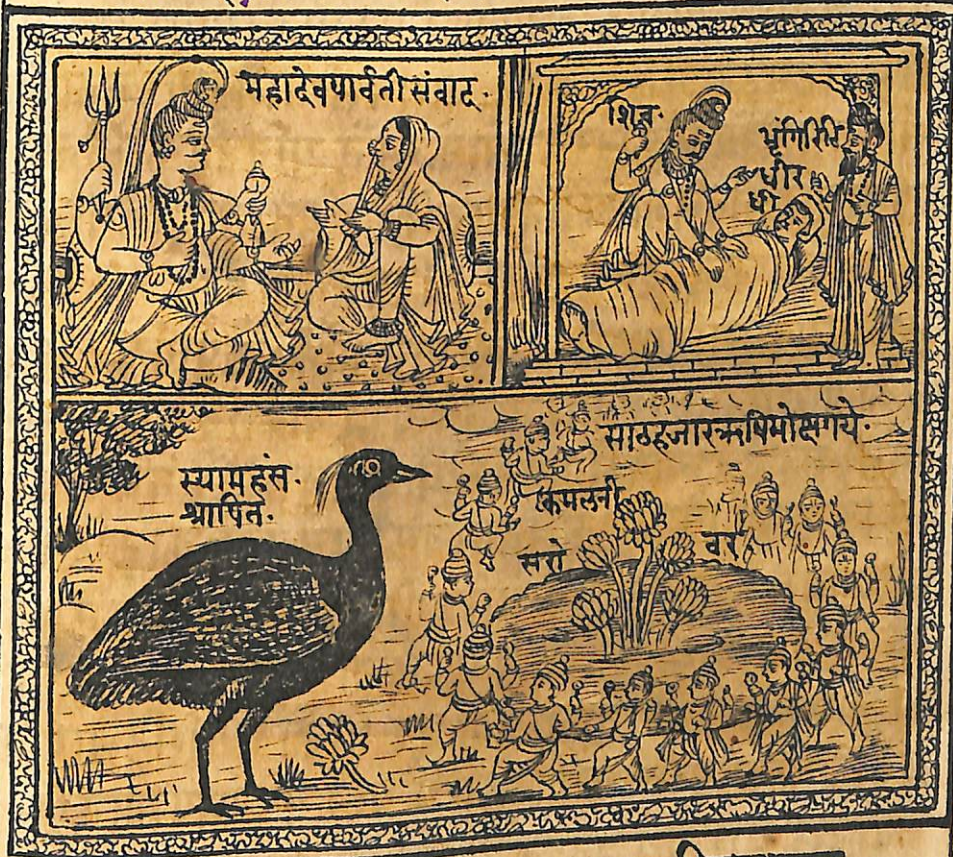 महादेवपार्वती संवाद.
शिव.
भृंगिरिटि
धीर
धी
साठहजारऋषिमोक्षगये.
स्यामहंस.
श्रापित.
कमलनी
सरो
वर